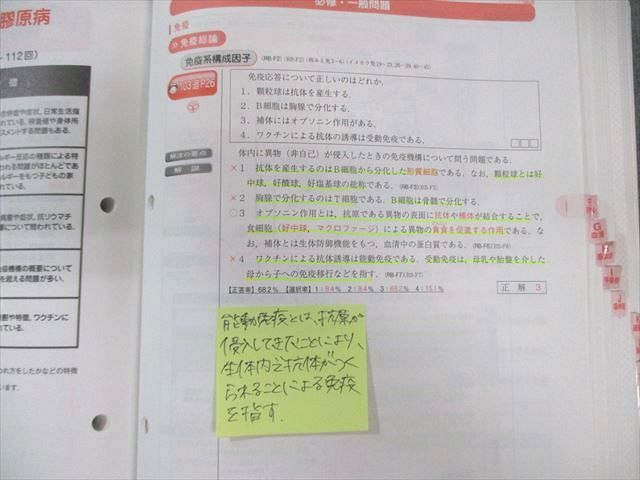 膠原病
112回)
必修・一般問題
免疫
免疫総論
免疫系構成因子
103追P26
免疫応答について正しいのはどれか.
1. 顆粒球は抗体を産生する.
2. B細胞は胸腺で分化する.
3. 補体にはオプソニン作用がある.
4. ワクチンによる抗体の誘導は受動免疫である.
解法の要点
体内に異物(非自己)が侵入したときの免疫機構について問う問題である.
解説
×1 抗体を産生するのはB細胞から分化した形質細胞である. なお, 顆粒球とは好
中球, 好酸球, 好塩基球の総称である.
×2 胸腺で分化するのはT細胞である. B細胞は骨髄で分化する.
○3 オプソニン作用とは, 抗原である異物の表面に抗体や補体が結合することで,
食細胞(好中球, マクロファージ)による異物の貪食を促進する作用である. な
お, 補体とは生体防御機能をもつ, 血清中の蛋白質である.
×4 ワクチンによる抗体誘導は能動免疫である. 受動免疫は, 母乳や胎盤を介した
母から子への免疫移行などを指す.
【正答率】68.2% 【選択率】1:8.4% 2:8.4% 3:68.2% 4:15.1%
正解 3
能動免疫とは、抗原が
侵入してきたことにより、
生体内で抗体がつく
られることによる免疫
を指す.
G
血液
H
I
J